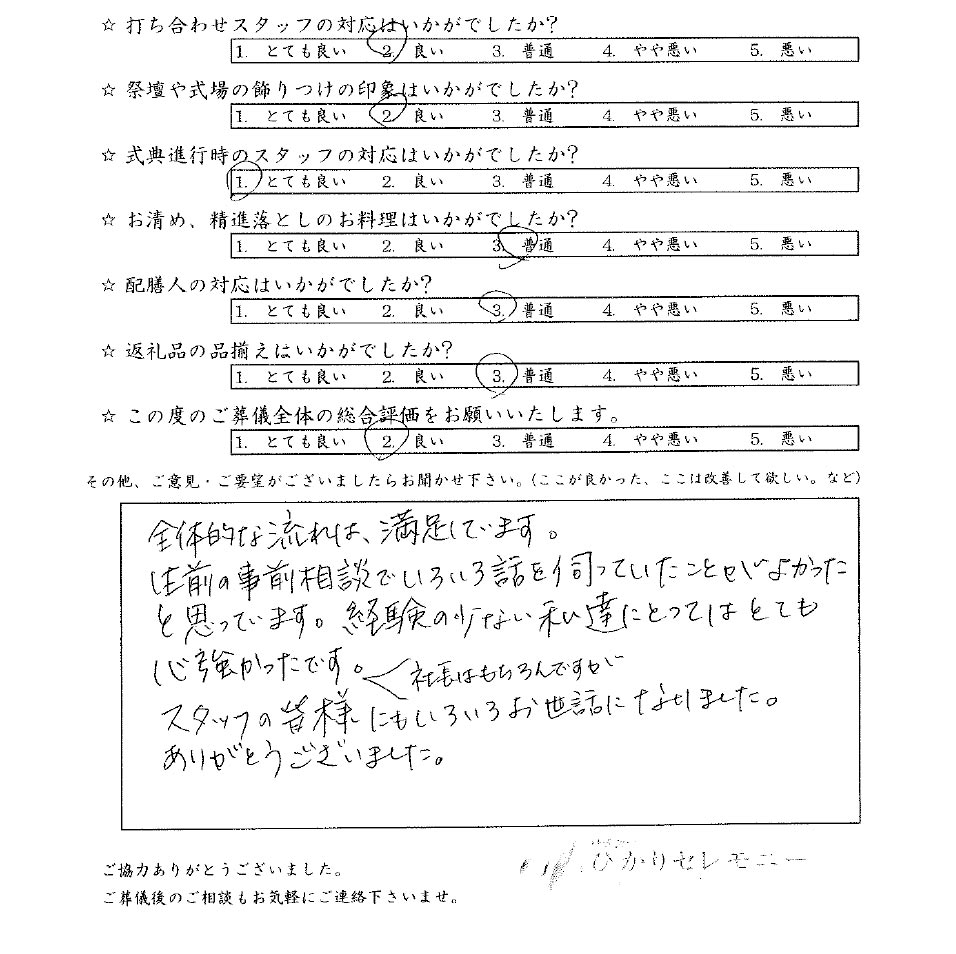 ☆ 打ち合わせスタッフの対応はいかがでしたか?
1. とても良い 2. 良い 3. 普通 4. やや悪い 5. 悪い
☆ 祭壇や式場の飾りつけの印象はいかがでしたか?
1. とても良い 2. 良い 3. 普通 4. やや悪い 5. 悪い
☆ 式典進行時のスタッフの対応はいかがでしたか?
1. とても良い 2. 良い 3. 普通 4. やや悪い 5. 悪い
☆ お清め、精進落としのお料理はいかがでしたか?
1. とても良い 2. 良い 3. 普通 4. やや悪い 5. 悪い
☆ 配膳人の対応はいかがでしたか?
1. とても良い 2. 良い 3. 普通 4. やや悪い 5. 悪い
☆ 返礼品の品揃えはいかがでしたか?
1. とても良い 2. 良い 3. 普通 4. やや悪い 5. 悪い
☆ この度のご葬儀全体の総合評価をお願いいたします。
1. とても良い 2. 良い 3. 普通 4. やや悪い 5. 悪い
その他、ご意見・ご要望がございましたらお聞かせ下さい。(ここが良かった、ここは改善して欲しい。など)
全体的な流れは、満足しています。
生前の事前相談でいろいろ話を伺っていたことがよかった
と思っています。経験の少ない私達にとってはとても
心強かったです。
社長はもちろんですが
スタッフの皆様にもいろいろお世話になりました。
ありがとうございました。
ご協力ありがとうございました。
ひかりセレモニー
ご葬儀後のご相談もお気軽にご連絡下さいませ。